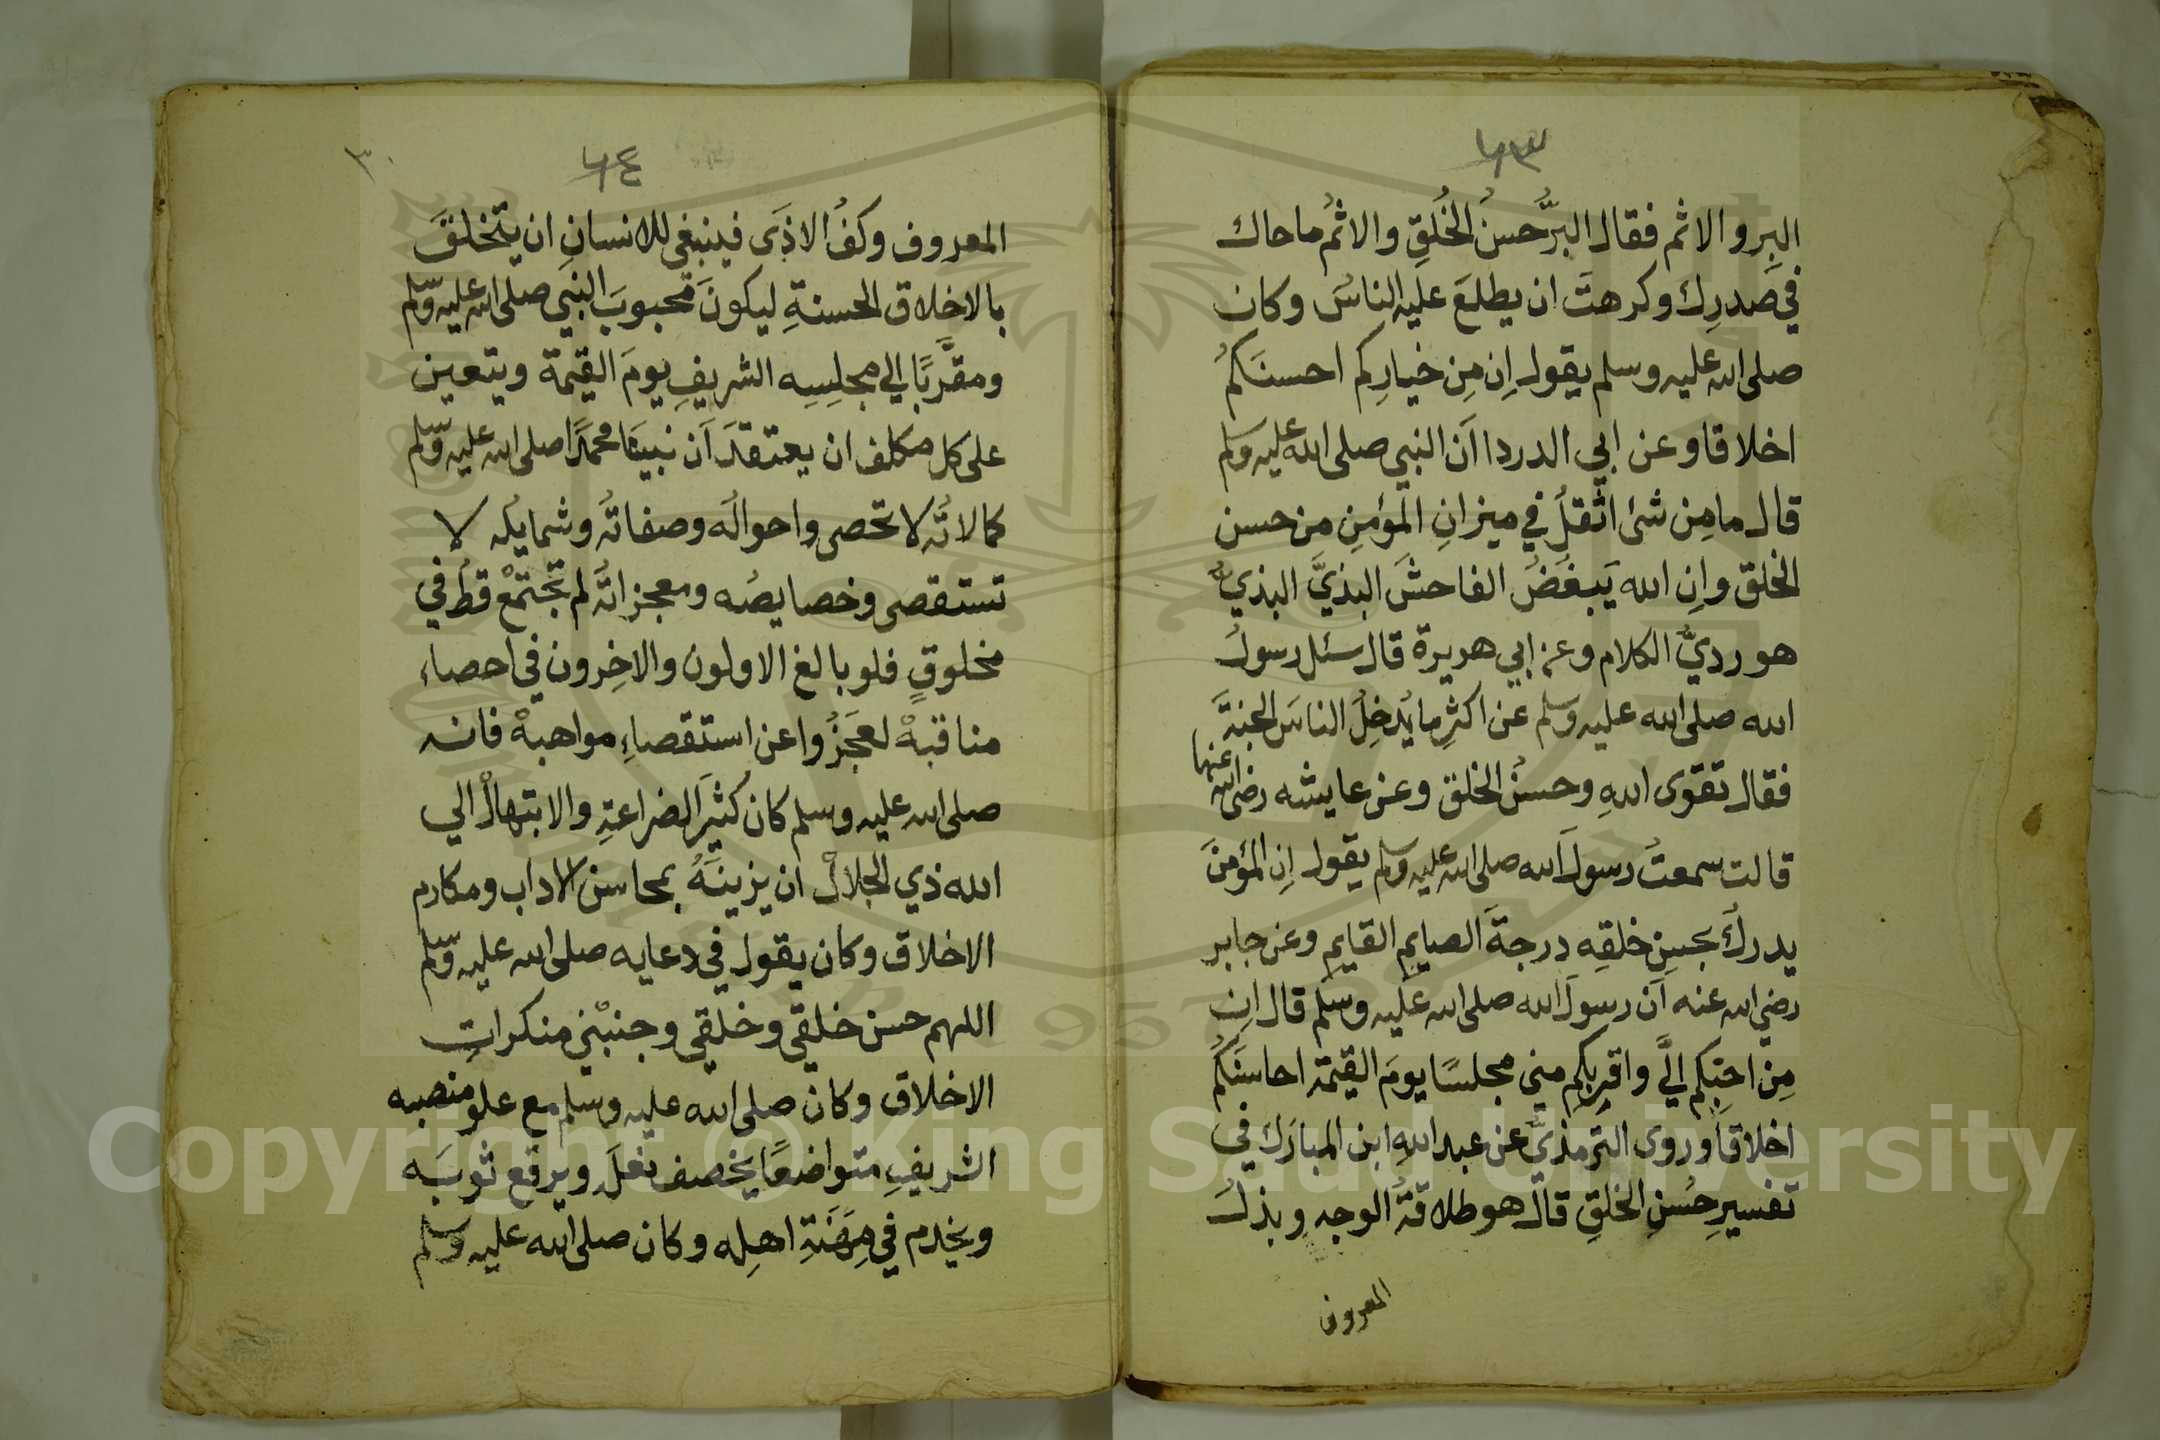 ٦٣
البِرِ والاثم فقال البرُّ حسنُ الخُلقِ والاثمُ ماحاك
في صدرِك وكرهتَ ان يطلعَ عليه الناسُ وكان
صلى الله عليه وسلم يقول اِن مِن خيارِكم احسنَكمُ
اخلاقا وعن ابي الدردا اَن النبي صلى الله عليه وسلم
قال مامِن شئ اثقلُ في ميزانِ المؤمنِ من حسن
الخلق واِن الله يَبغَضُ الفاحشَ البذيَّ البذيُّ
هو رديُّ الكلام وعن ابي هريرة قال سئل رسولُ
الله صلى الله عليه وسلم عن اكثرِ مايُدخِلُ الناسَ الجنةَ
فقال تقوى اللهِ وحسنُ الخلق وعن عايشه رضى الله عنها
قالت سمعتُ رسولَ الله صلى الله عليه وسلم يقول اِن المؤمنَ
يدركُ بحسنِ خلقِه درجةَ الصايمِ القايمِ وعن جابر
رضي الله عنه اَن رسولَ الله صلى الله عليه وسلم قال اِن
مِن احبِكم اليَّ واقربِكم مني مجلسًا يومَ القيمة احاسنَكُم
اخلاقاً وروى الترمذيُّ عن عبد اللهِ ابن المبارَك في
تفسيرِ حُسْنِ الخلقِ قال هو طلاقةُ الوجه وبذلُ
المعروف
٦٤
٣٠
المعروف وكفُ الاذَى فينبغي للانسانِ ان يتخلقَ
بالاخلاق الحسنةِ ليكونَ محبوبَ النبي صلى الله عليه وسلم
ومقرَّبًا الي مجلِسِه الشريفِ يومَ القيمة ويتعين
على كل مكلف ان يعتقدَ اَن نبينَا محمدًا صلى الله عليه وسلم
كمالاتُه لا تحصى واحوالُه وصفاتُه وشمايلُه لا
تستقصى وخصايصُه ومعجزاتُه لم تجتمعْ قطُ في
مخلوقٍ فلو بالغ الاولون والاخِرون في احصاء
مناقبهْ لعجَزُوا عن استقصاءِ مواهبهْ فانه
صلى الله عليه وسلم كان كثيرَ الضراعةِ والابتهالْ الي
الله ذي الجلالْ ان يزينَهُ بمحاسن الاداب ومكارم
الاخلاق وكان يقول في دعايه صلى الله عليه وسلم
اللهم حسن خلقي وخلقي وجنبْني منكراتِ
الاخلاق وكان صلى الله عليه وسلم مع علو منصبه
الشريفِ متواضعًا يخصف نعلَه ويرقع ثوبَه
ويخدم في مِهْنَةِ اهلِه وكان صلى الله عليه وسلم
Copyright © King Saud University
1957